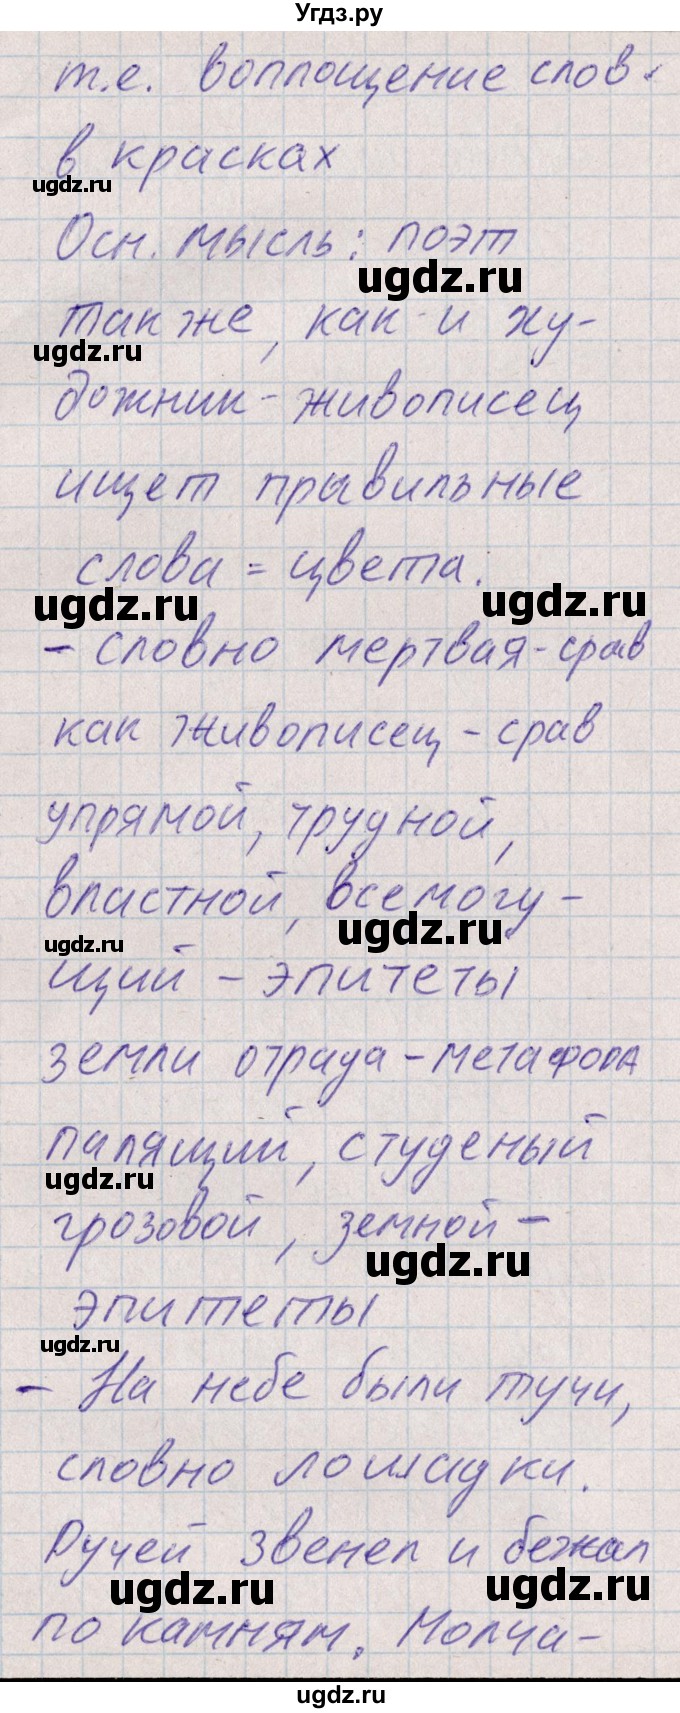 Угдз.ру
т.е. воплощение слов
в красках
ugdz.ru
Осн. мысль: поэт
ugdz.ru
также, как и ху-
ugdz.ru
дожник - живописец
ищет правильные
слова = цвета.
ugdz.ru
ugdz.ru
- словно мертвая - срав
как живописец - срав
упрямой, трудной,
властной, всемогу-
ugdz.ru
ugdz.ru
щий - эпитеты
земли отрада - метафора
палящий, студеный
ugdz.ru
грозовой, земной -
ugdz.ru
эпитеты
ugdz.ru
- На небе были тучи,
словно лошадки.
Ручей звенел и бежал
ugdz.ru
ugdz.ru
по камням. Молча-
ugdz.ru